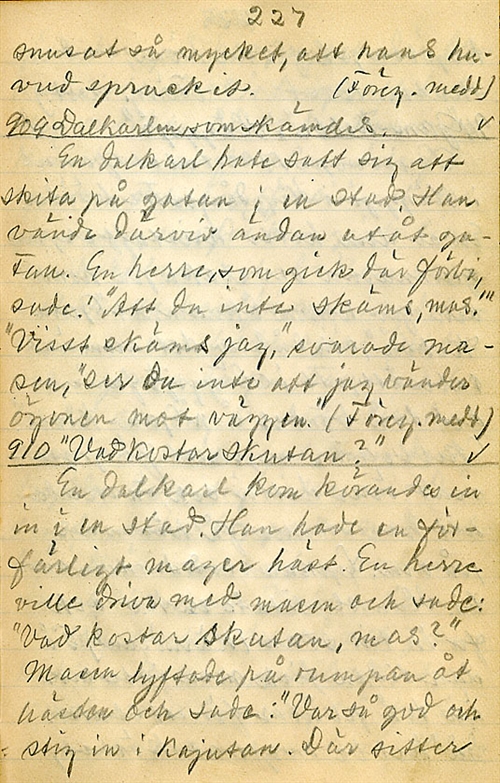 227
snusat så mycket, att hans hu-
vud spruckit. (Föreg. medd)
909 Dalkarlen, som skämdes. v
En dalkarl hade satt sig att
skita på gatan i en stad. Han
vände därvid ändan utåt ga-
tan. En herre, som gick där förbi,
sade: "Att du inte skäms, mas."
"Visst skäms jag," svarade ma-
sen, "ser du inte att jag vänder
ögonen mot väggen." (Föreg. medd)
910 "Vad kostar skutan?" v
En dalkarl kom körandes in
in i en stad. Han hade en för-
färligt mager häst. En herre
ville driva med masen och sade:
"Vad kostar skutan, mas?"
Masen lyftade på rumpan åt
hästen och sade: "Var så god och
stig in i kajutan. Där sitter